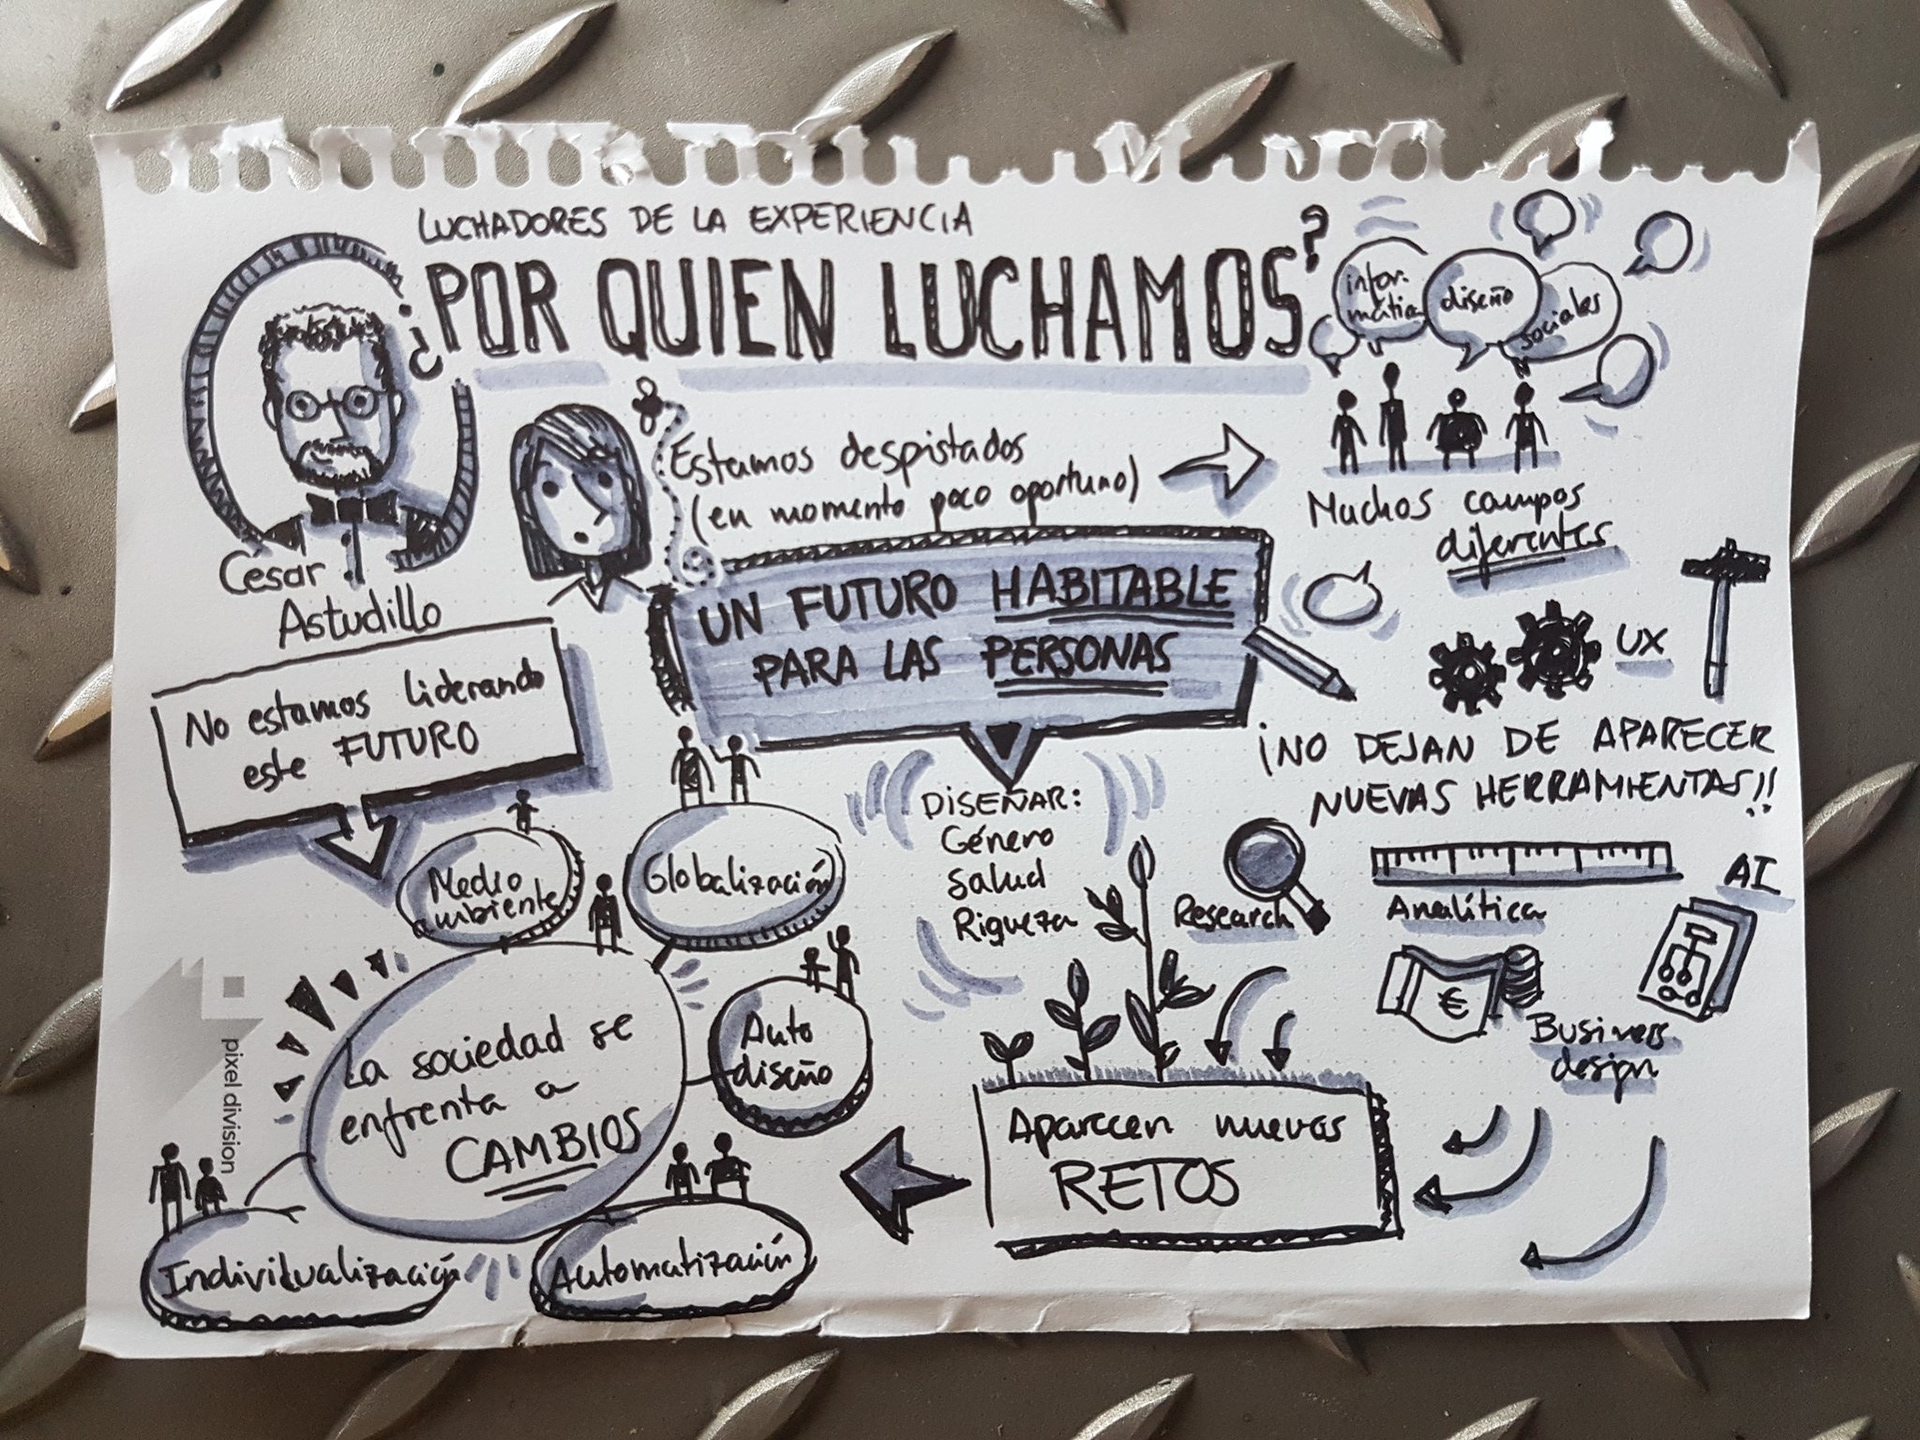 LUCHADORES DE LA EXPERIENCIA
¿POR QUIEN LUCHAMOS?
Cesar
Astudillo
Estamos despistados
(en momento poco oportuno)
infor-
mática
diseño
sociales
Muchos campos
diferentes
UN FUTURO HABITABLE
PARA LAS PERSONAS
No estamos liderando
este FUTURO
UX
¡NO DEJAN DE APARECER
NUEVAS HERRAMIENTAS!!
DISEÑAR:
Género
Salud
Riqueza
Research
Analítica
AI
€
Business
design
Aparecen nuevos
RETOS
La sociedad se
enfrenta a
CAMBIOS
Medio
ambiente
Globalización
Auto
diseño
Automatización
Individualización
pixel division